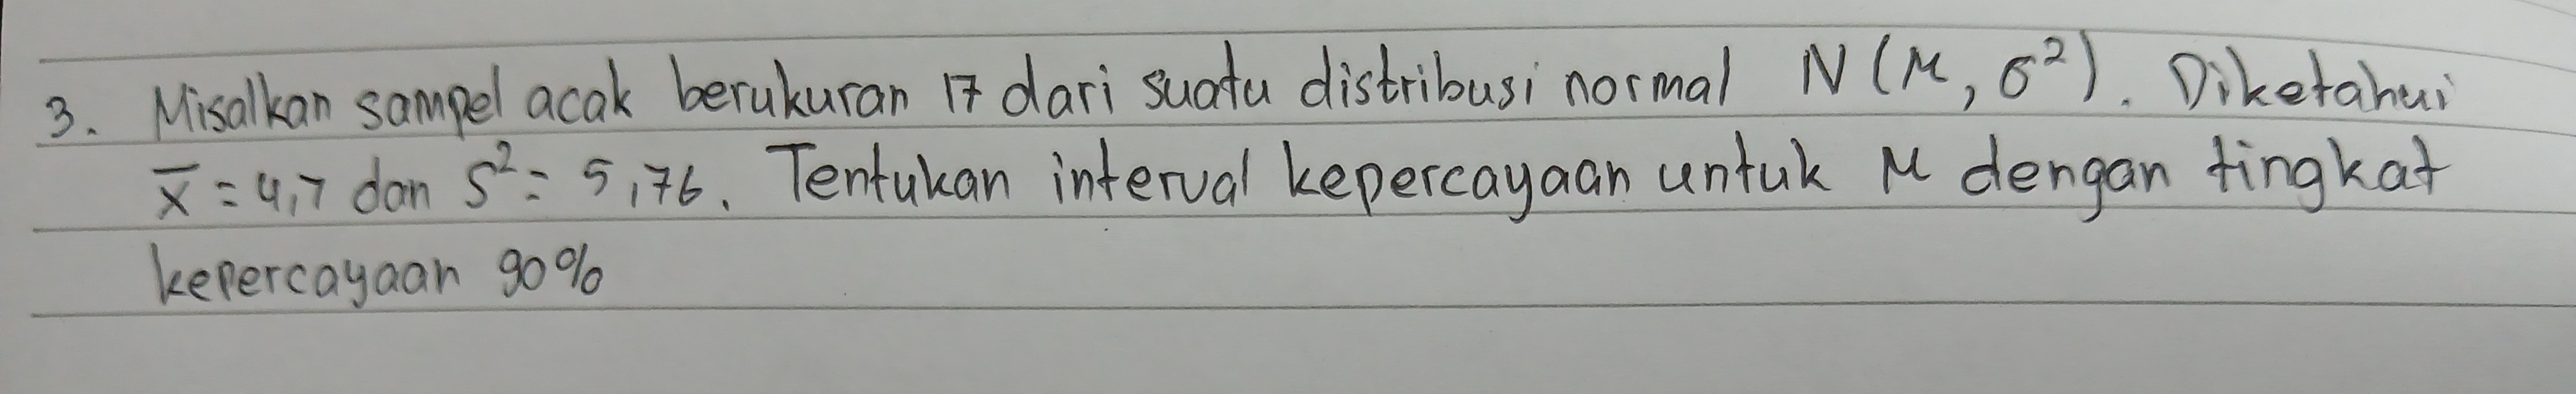 3. Misalkan sampel acak berukuran 17 dari suatu distribusi normal N(μ, σ²). Diketahui
x̄ = 4,7 dan S² = 5,76. Tentukan interval kepercayaan untuk μ dengan tingkat
kepercayaan 90%